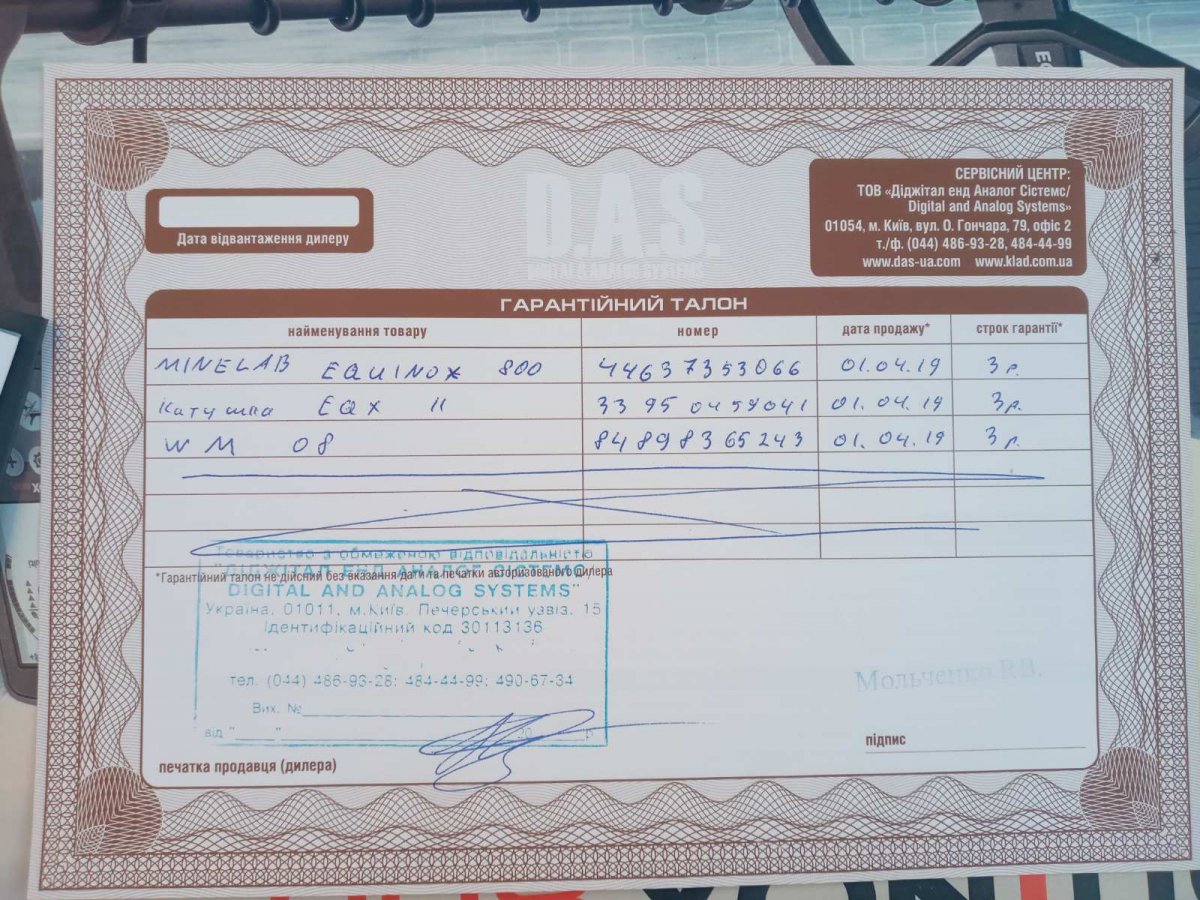 D.A.S.
Дата відвантаження дилеру
СЕРВІСНИЙ ЦЕНТР:
ТОВ «Діджітал енд Аналог Сістемс/
Digital and Analog Systems»
01054, м. Київ, вул. О. Гончара, 79, офіс 2
т./ф. (044) 486-93-28, 484-44-99
www.das-ua.com www.klad.com.ua
ГАРАНТІЙНИЙ ТАЛОН
найменування товару номер дата продажу* строк гарантії*
MINELAB EQUINOX 800 44637353066 01.04.19 3 р.
Катушка EQX 11 33950459041 01.04.19 3р.
WM 08 84898365243 01.04.19 3 р.
Товариство з обмеженою відповідальністю
"ДІДЖІТАЛ ЕНД АНАЛОГ СІСТЕМС/
*Гарантійний талон не дійсний без вказання дати та печатки авторизованого дилера
DIGITAL AND ANALOG SYSTEMS"
Україна, 01011, м.Київ, Печерський узвіз, 15
Ідентифікаційний код 30113136
тел. (044) 486-93-28; 484-44-99; 490-67-34
Вих. №
від " " 20 р.
печатка продавця (дилера)
Мольченко
підпис